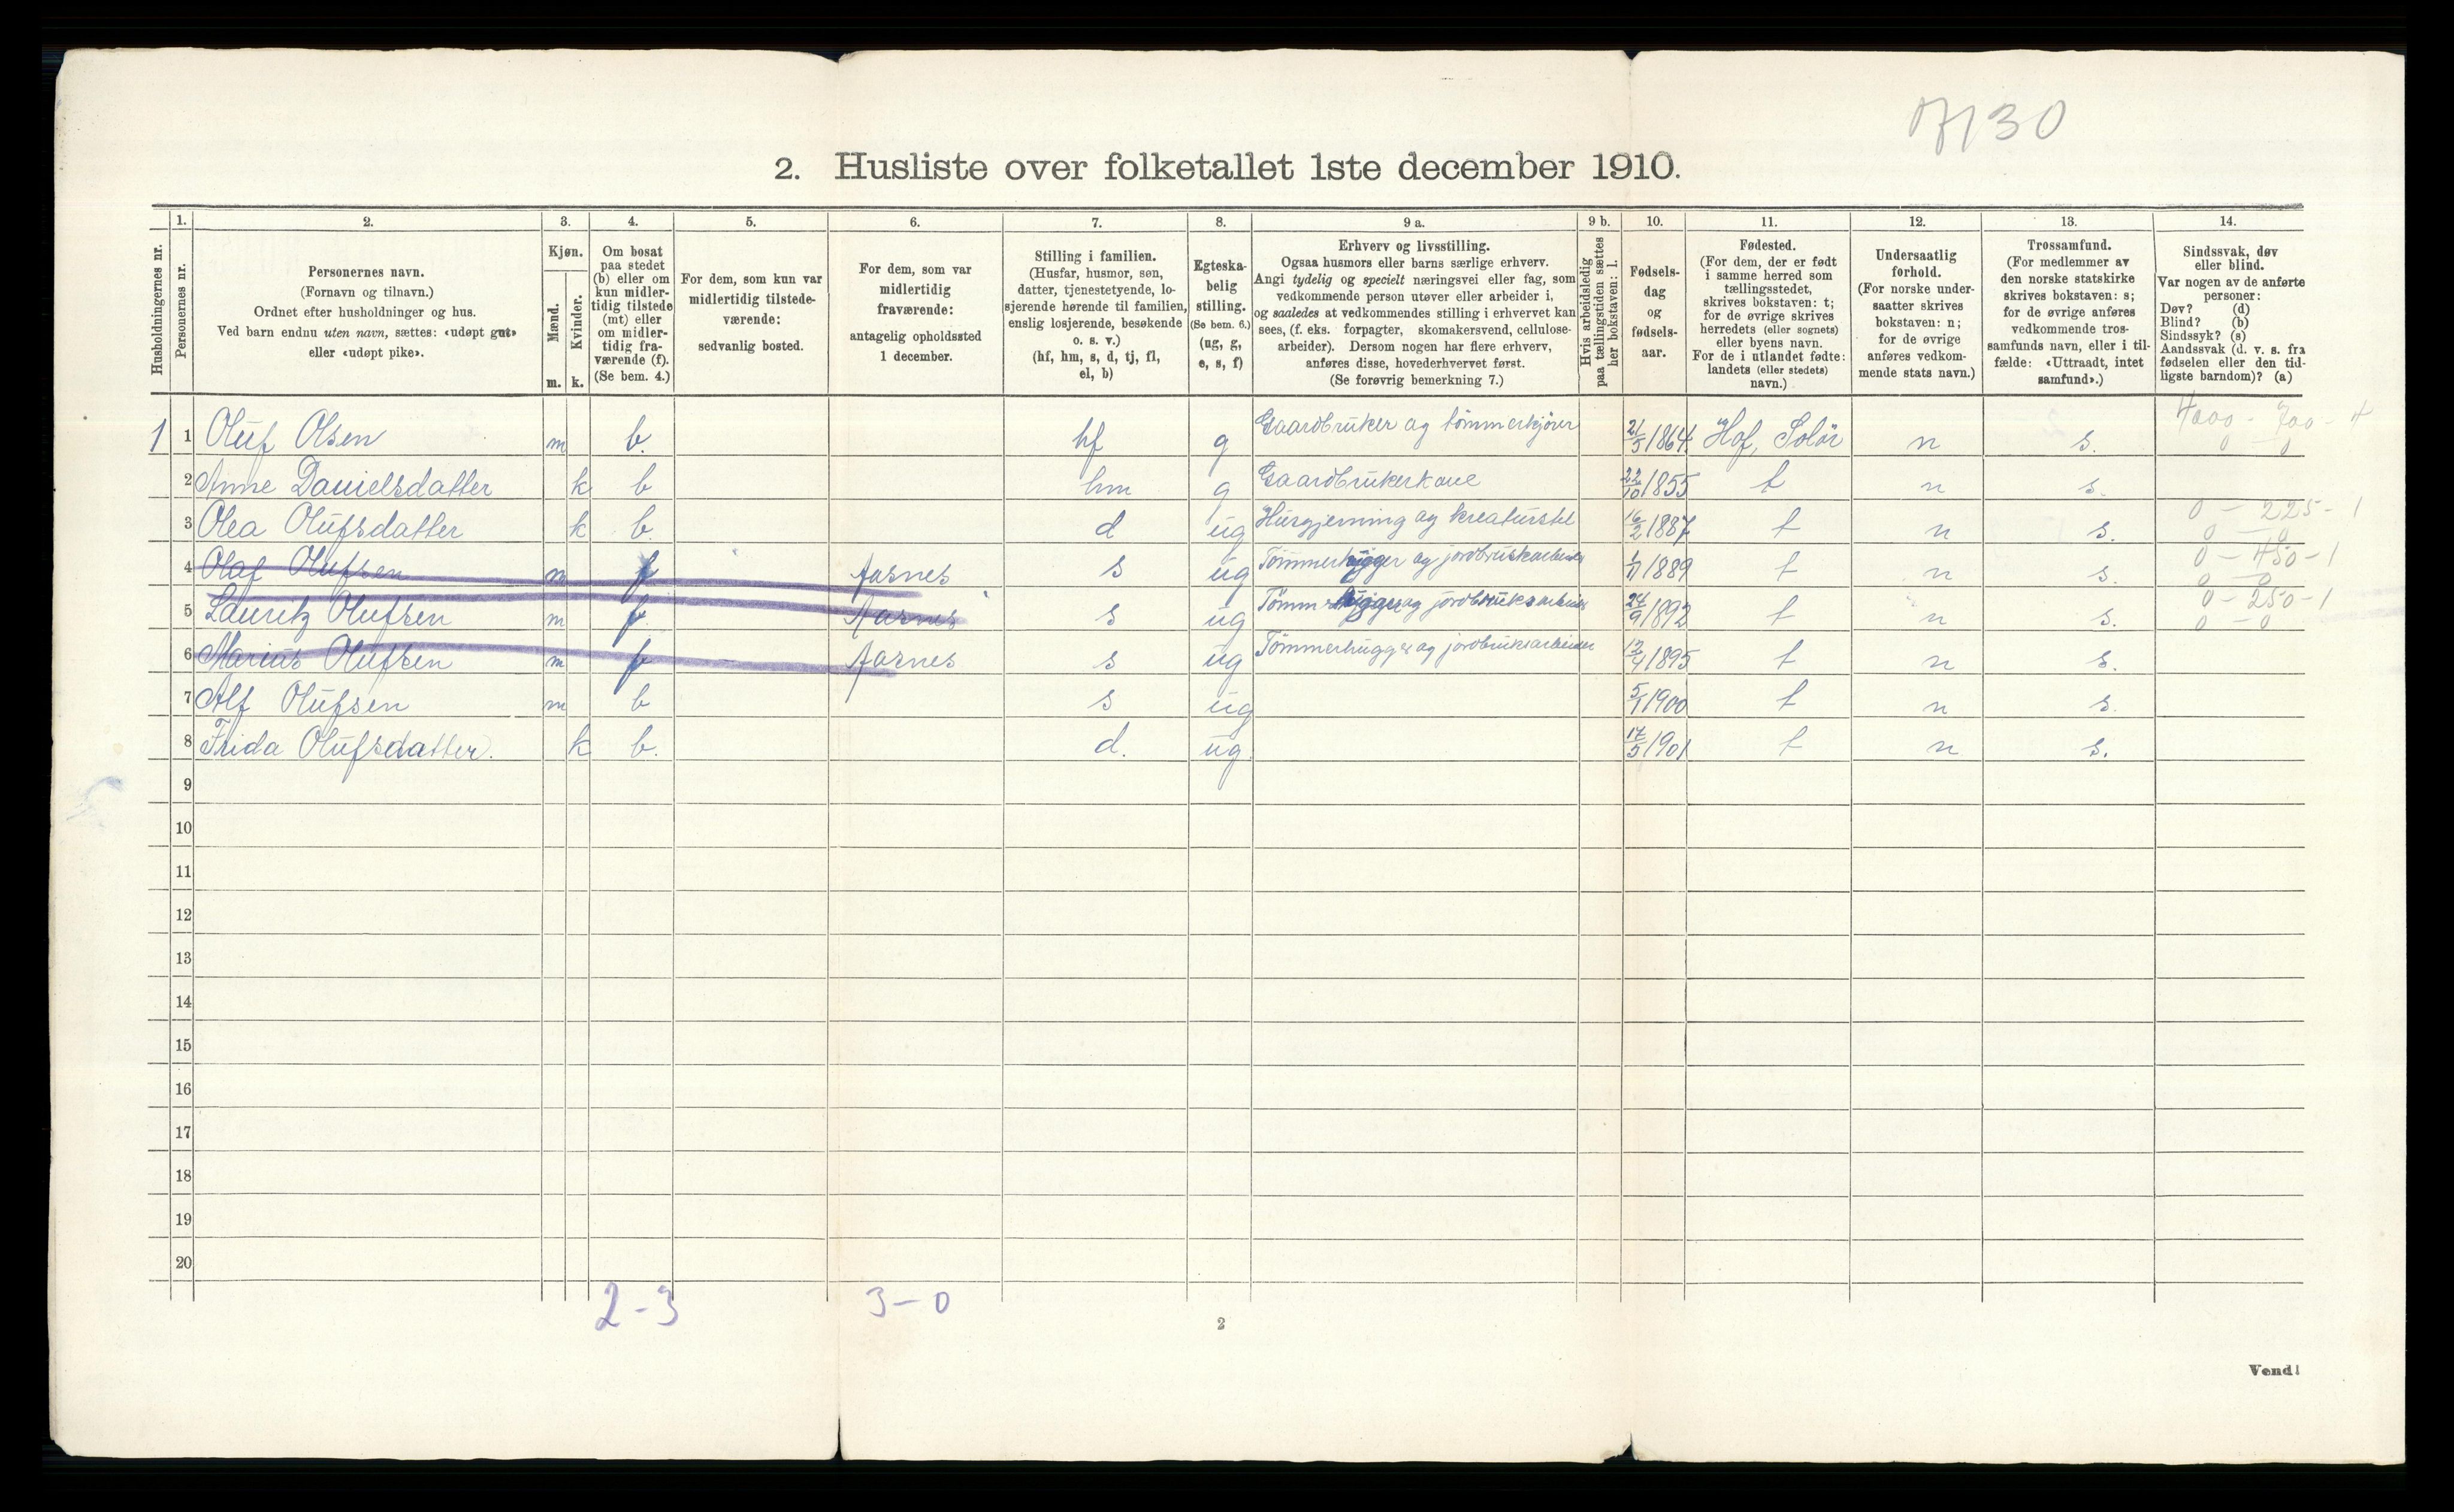 2. Husliste over folketallet 1ste december 1910.
Husholdningernes nr.
1.
Personernes nr.
2.
Personernes navn.
(Fornavn og tilnavn.)
Ordnet efter husholdninger og hus.
Ved barn endnu uten navn, sættes: «udøpt gut»
eller «udøpt pike».
3.
Kjøn.
Mænd.
Kvinder.
m. k.
4.
Om bosat
paa stedet
(b) eller om
kun midler-
tidig tilstede
(mt) eller
om midler-
tidig fra-
værende (f).
(Se bem. 4.)
5.
For dem, som kun var
midlertidig tilstede-
værende:
sedvanlig bosted.
6.
For dem, som var
midlertidig
fraværende:
antagelig opholdssted
1 december.
7.
Stilling i familien.
(Husfar, husmor, søn,
datter, tjenestetyende, lo-
sjerende hørende til familien,
enslig losjerende, besøkende
o. s. v.)
(hf, hm, s, d, tj, fl,
el, b)
8.
Egteska-
belig
stilling.
(Se bem. 6.)
(ug, g,
e, s, f)
9 a.
Erhverv og livsstilling.
Ogsaa husmors eller barns særlige erhverv.
Angi tydelig og specielt næringsvei eller fag, som
vedkommende person utøver eller arbeider i,
og saaledes at vedkommendes stilling i erhvervet kan
sees, (f. eks. forpagter, skomakersvend, cellulose-
arbeider). Dersom nogen har flere erhverv,
anføres disse, hovederhvervet først.
(Se forøvrig bemerkning 7.)
9 b.
Hvis arbeidsledig
paa tællingstiden sættes
her bokstaven: l.
10.
Fødsels-
dag
og
fødsels-
aar.
11.
Fødested.
(For dem, der er født
i samme herred som
tællingsstedet,
skrives bokstaven: t;
for de øvrige skrives
herredets (eller sognets)
eller byens navn.
For de i utlandet fødte:
landets (eller stedets)
navn.)
12.
Undersaatlig
forhold.
(For norske under-
saatter skrives
bokstaven: n;
for de øvrige
anføres vedkom-
mende stats navn.)
13.
Trossamfund.
(For medlemmer av
den norske statskirke
skrives bokstaven: s;
for de øvrige anføres
vedkommende tros-
samfunds navn, eller i til-
fælde: «Uttraadt, intet
samfund».)
14.
Sindssvak, døv
eller blind.
Var nogen av de anførte
personer:
Døv? (d)
Blind? (b)
Sindssyk? (s)
Aandssvak (d. v. s. fra
fødselen eller den tid-
ligste barndom)? (a)
4000 - 700 - 4
0 0
1 1 Oluf Olsen m b. hf g Gaardbruker og tømmerkjører 21/5 1864 Hof, Solør n s.
2 Anne Danielsdatter k b hm g Gaardbrukerkone 22/10 1855 t n s.
0 - 225 - 1
0 - 0
3 Olea Olufsdatter k b. d ug Husgjerning og kreaturstel 16/2 1887 t n s.
0 - 450 - 1
0 - 0
4 Olaf Olufsen m f Aasnes s ug Tømmerhugger og jordbruksarbeider 1889 t n s.
0 - 250 - 1
0 - 0
5 Lauritz Olufsen m f. Aasnes s ug Tømmerhugger og jordbruksarbeider 24/9 1892 t n s.
6 Marius Olufsen m f Aasnes s ug Tømmerhugger og jordbruksarbeider 13/4 1895 t n s.
7 Alf Olufsen m b s ug 5/1 1900 t n s.
8 Frida Olufsdatter. k b. d. ug 17/5 1901 t n s.
9
10
11
12
13
14
15
16
17
18
19
20
2-3 3-0
2
Vend!